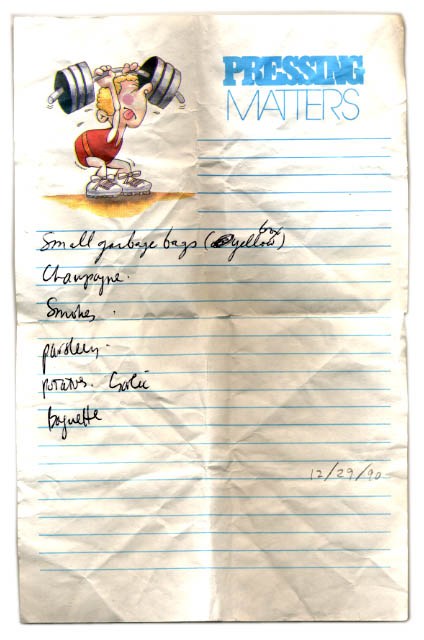 PRESSING
MATTERS
Small garbage bags (yellow box)
Champagne.
Smokes.
parsley.
potatoes. Garlic
baguette
12/29/90